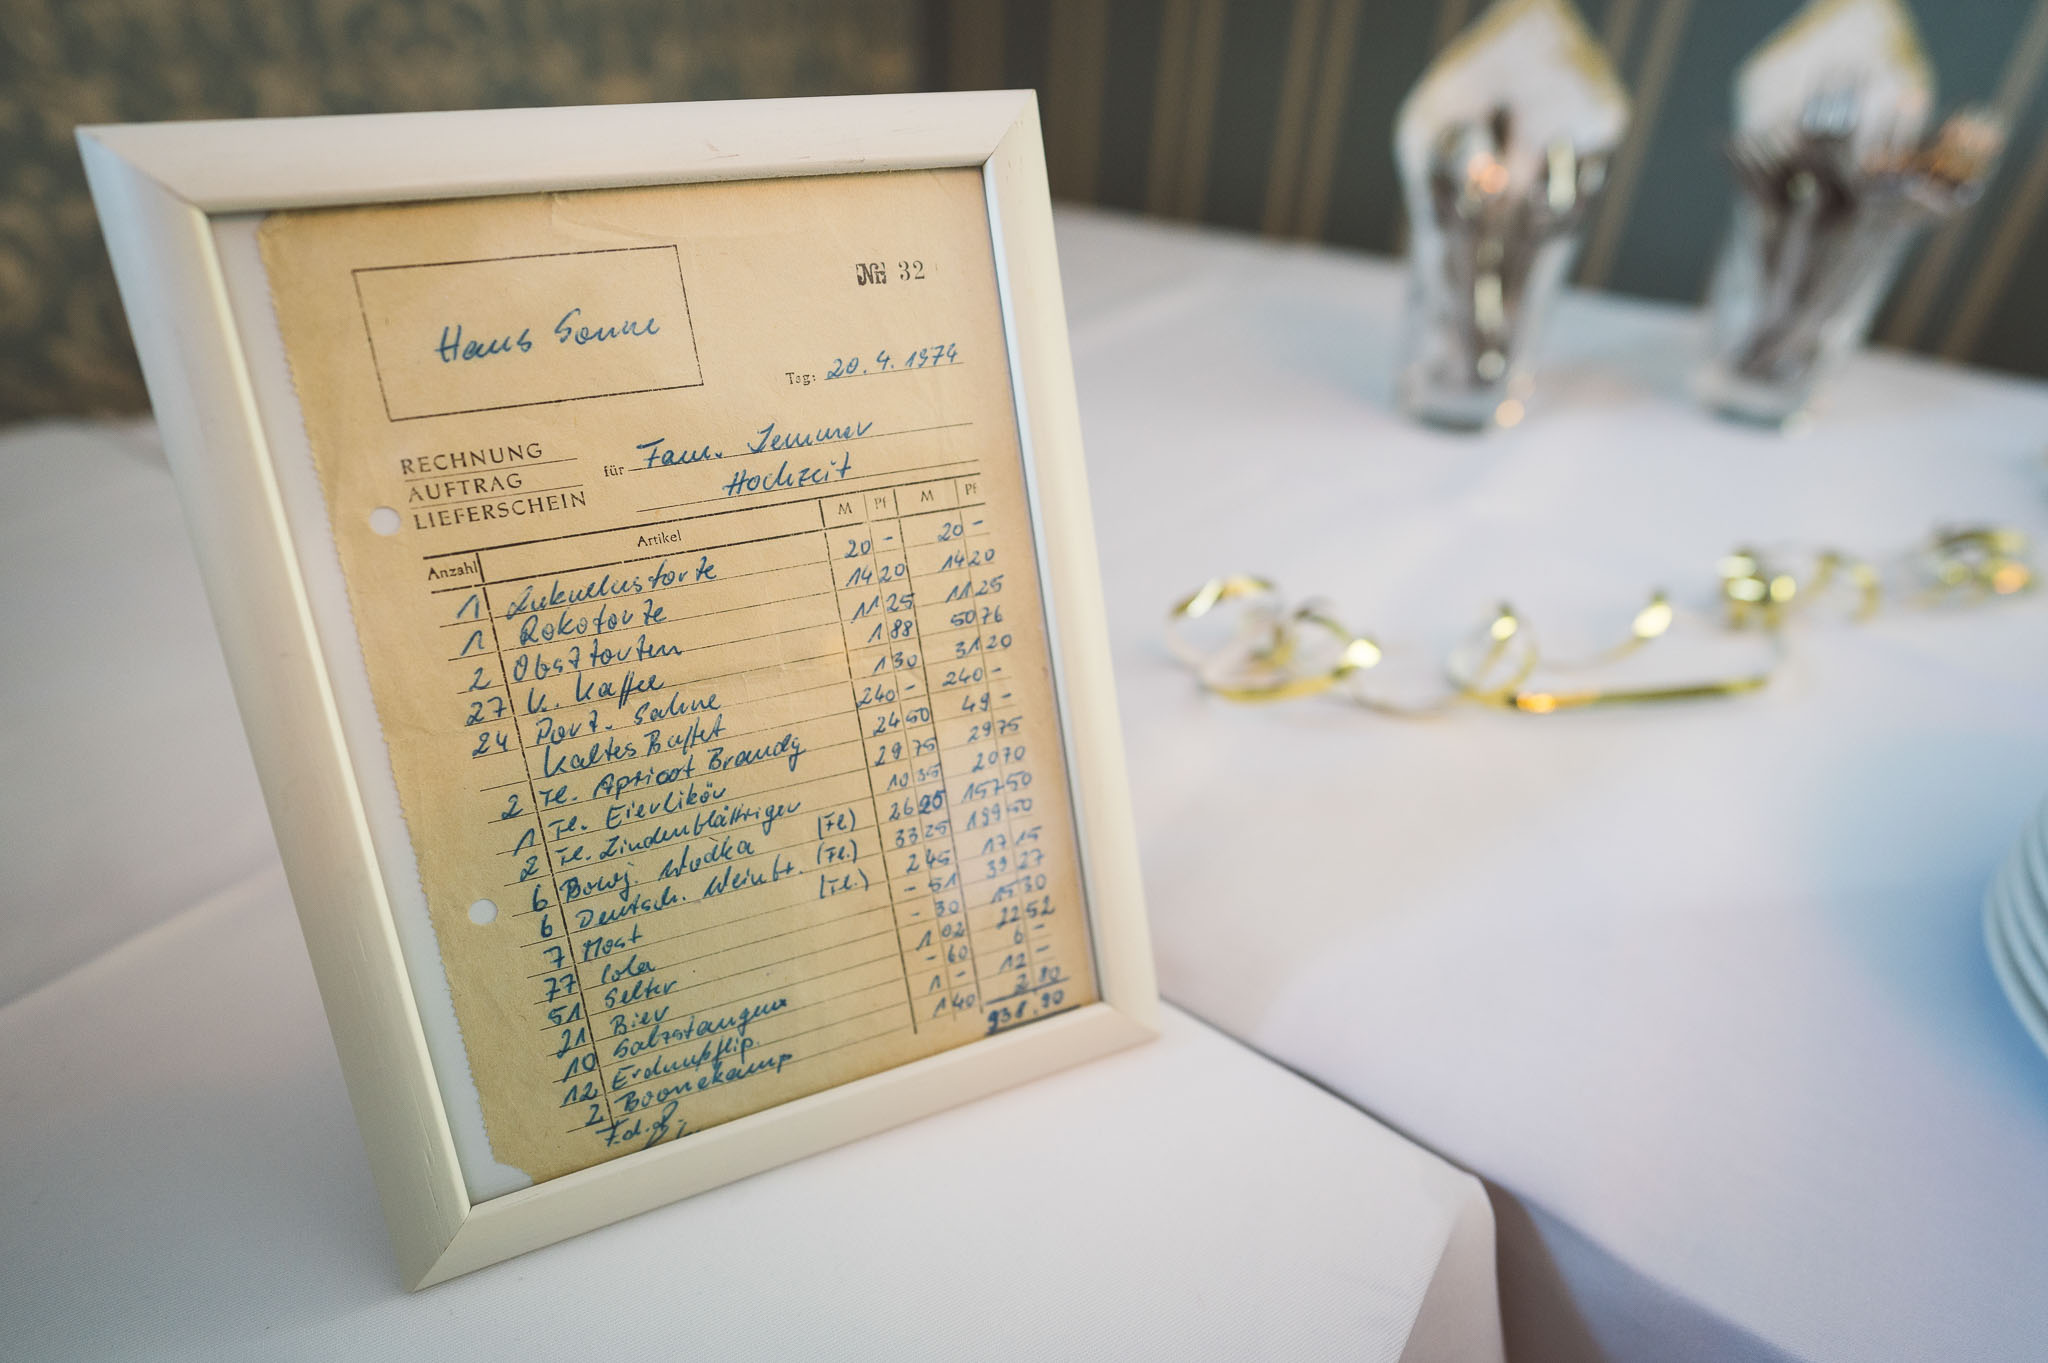 Haus Sonne
Nr. 32
Tag: 20.4.1974
RECHNUNG
AUFTRAG
LIEFERSCHEIN
für Fam. Jemmer
Hochzeit
Anzahl Artikel M Pf M Pf
1 Lukullustorte 20 - 20 -
1 Rokotorte 14 20 14 20
2 Obsttorten 11 25 11 25
27 K. Kaffee 1 88 50 76
24 Port. Sahne 1 30 31 20
Kaltes Buffet 240 - 240 -
2 Fl. Apricot Brandy 24 50 49 -
1 Fl. Eierlikör 29 75 29 75
2 Fl. Lindenblättriger 10 35 20 70
6 Bowj. Wodka (Fl.) 26 25 157 50
6 Deutsch. Weinbr. (Fl.) 33 25 199 50
7 Most (Fl.) 2 45 17 15
77 Cola - 51 39 27
51 Selter - 30 15 30
21 Bier 1 02 22 52
10 Salzstangen - 60 6 -
12 Erdnußflip. 1 - 12 -
2 Boonekamp 1 40 2 80
F.d.R. 938.90